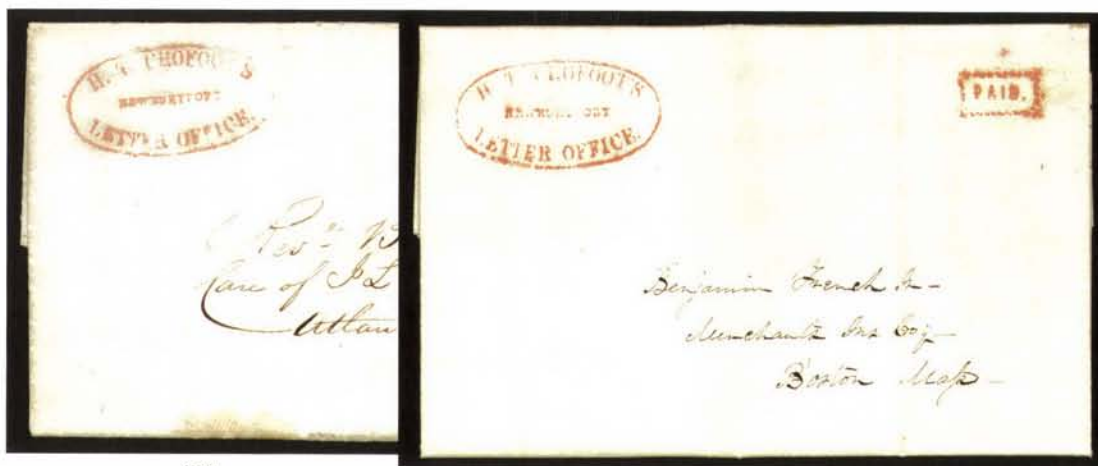 H. T. CROFOOT'S
NEWBURYPORT
LETTER OFFICE.
Revd
Care of J L
H. T. CROFOOT'S
NEWBURYPORT
LETTER OFFICE.
PAID.
Benjamin French Jr –
Merchants Ins Coy –
Boston Mass –